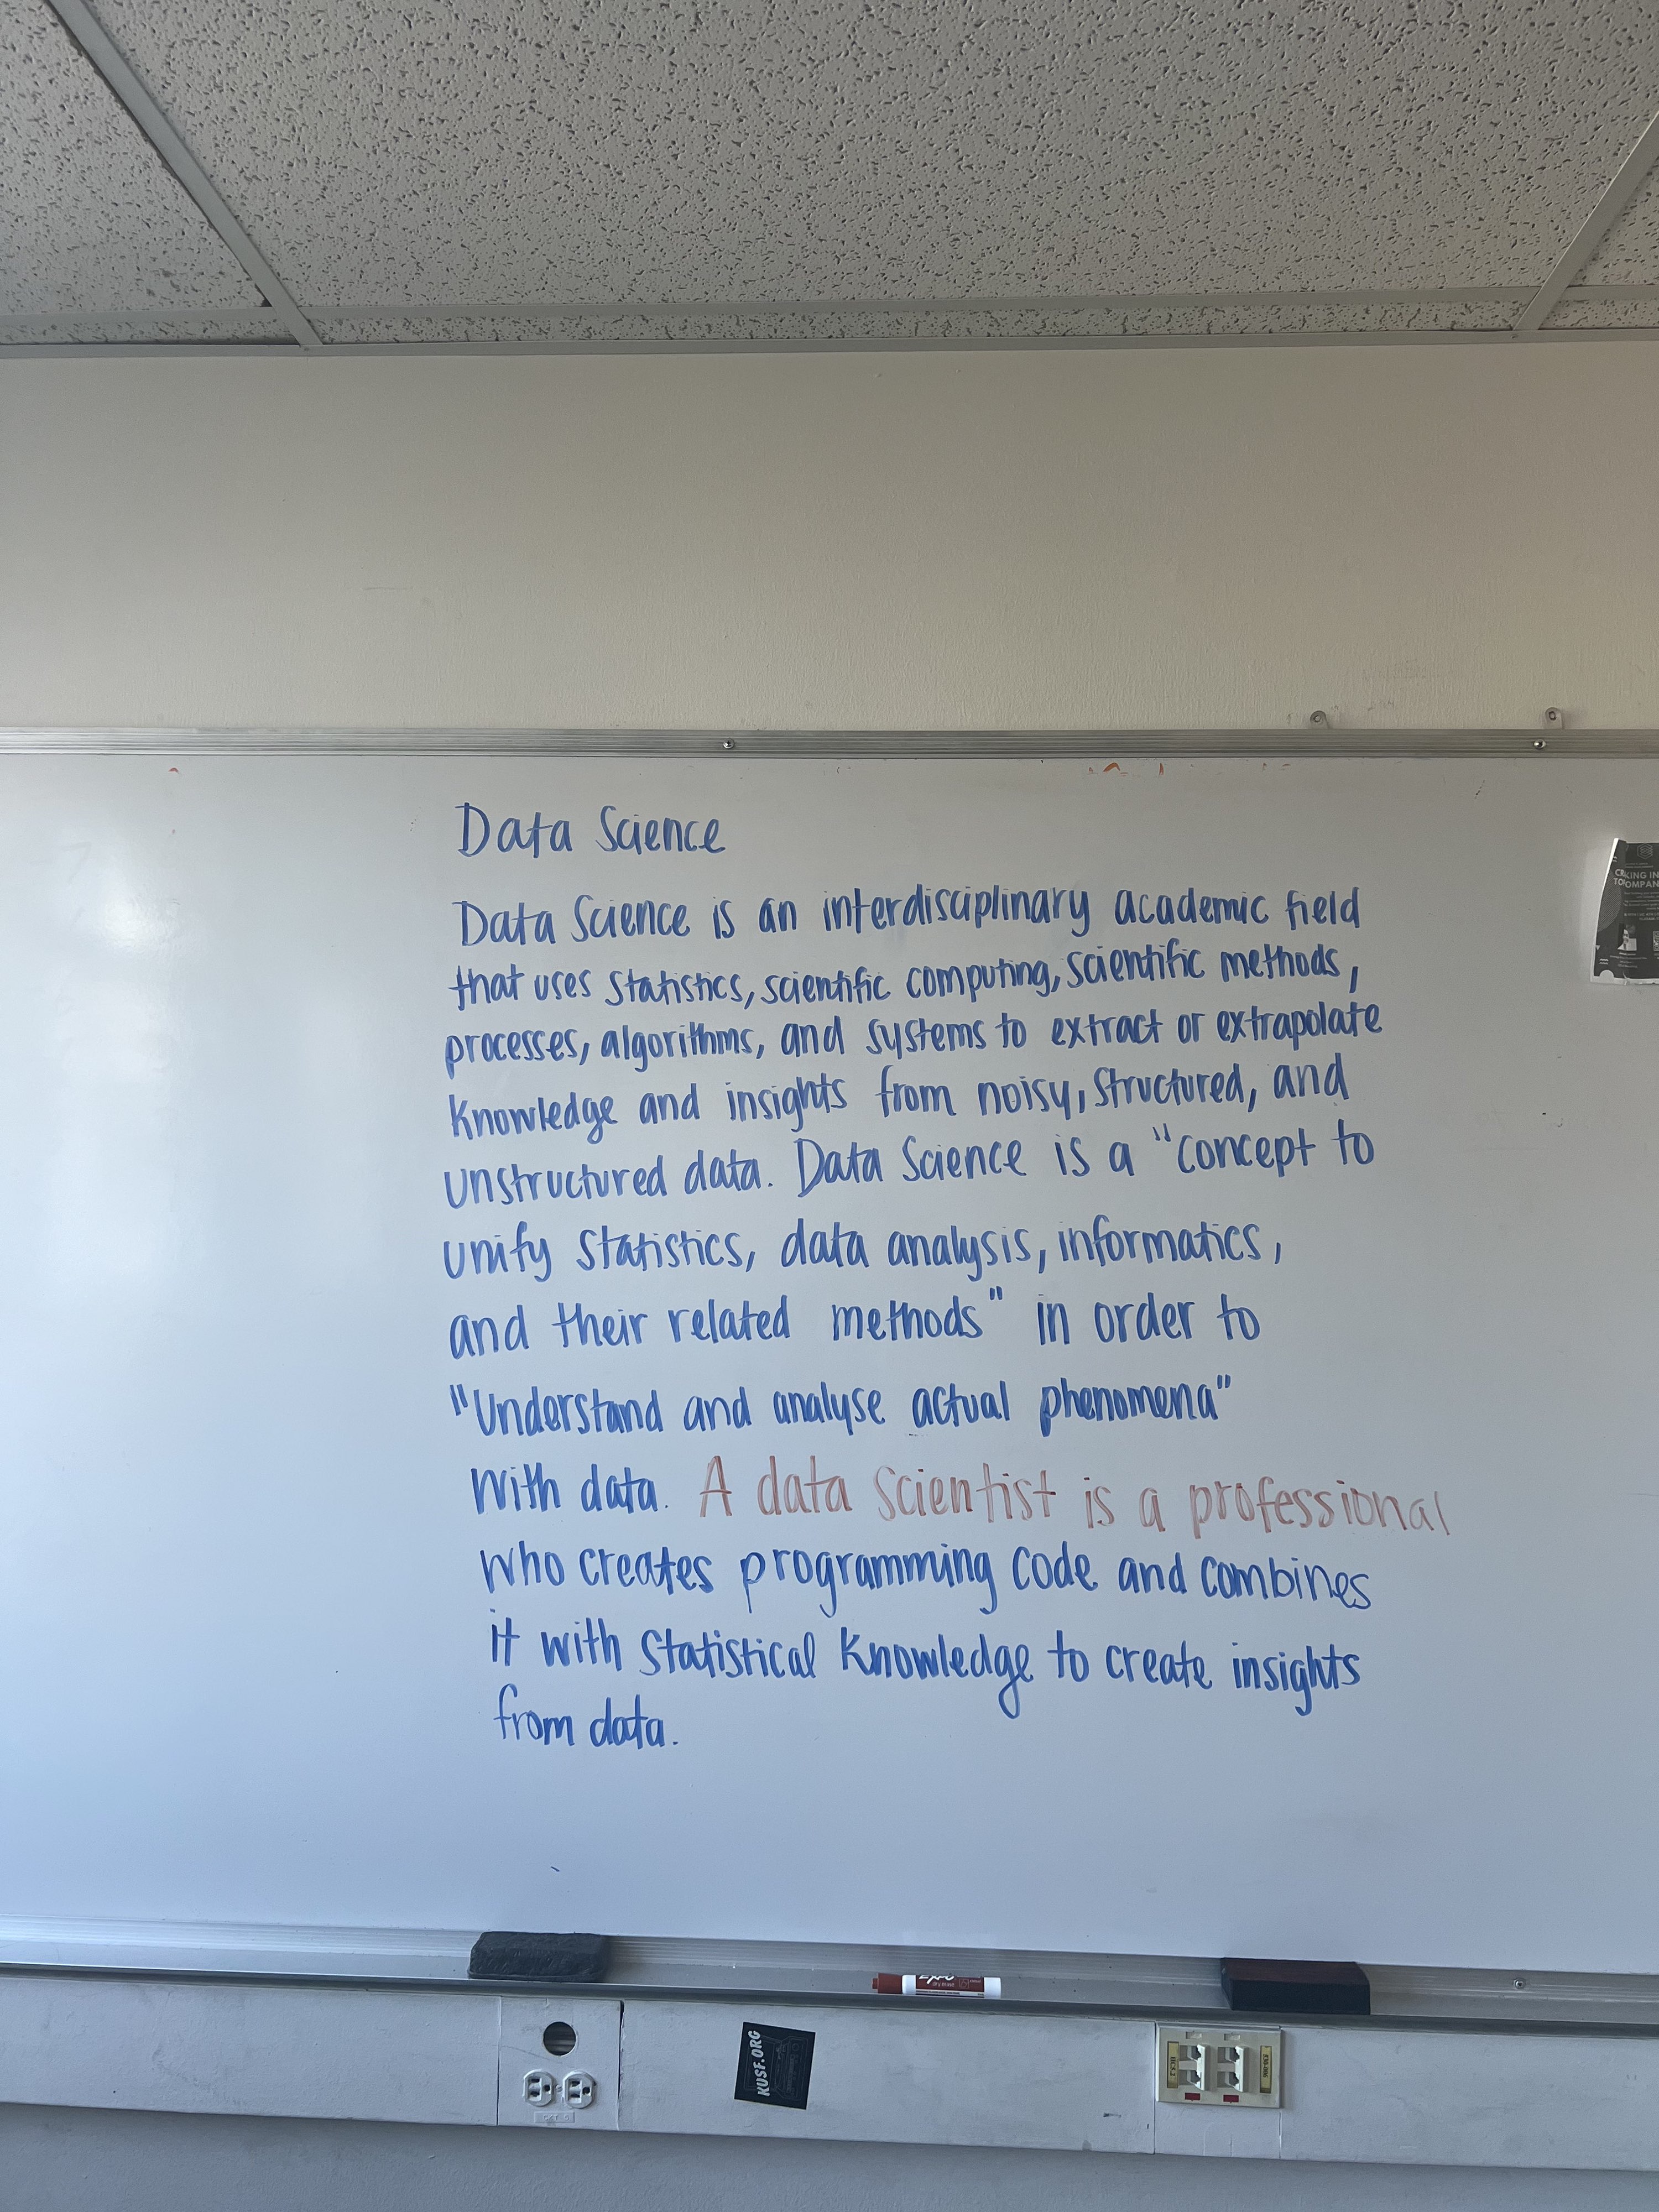 Data Science
Data Science is an interdisciplinary academic field
that uses statistics, scientific computing, scientific methods,
processes, algorithms, and systems to extract or extrapolate
knowledge and insights from noisy, structured, and
unstructured data. Data Science is a "concept to
unify statistics, data analysis, informatics,
and their related methods" in order to
"Understand and analyse actual phenomena"
with data. A data scientist is a professional
who creates programming code and combines
it with statistical knowledge to create insights
from data.
KUSF.ORG